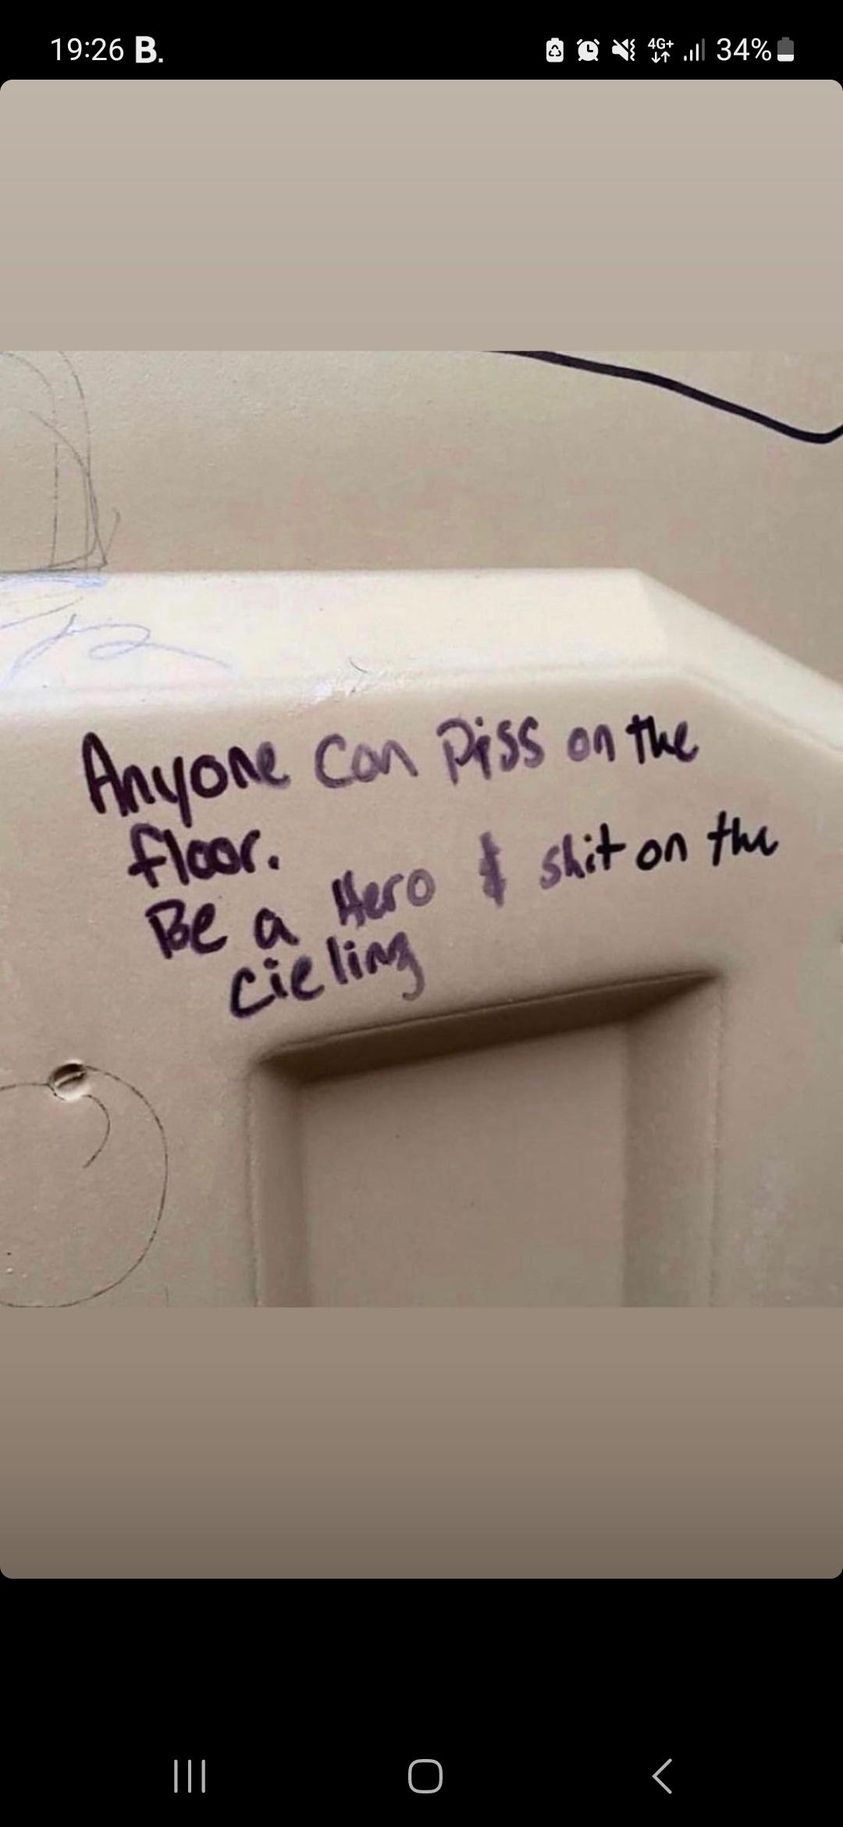 19:26 B.
4G+ 34%
Anyone can piss on the
floor.
Be a Hero & shit on the
cieling